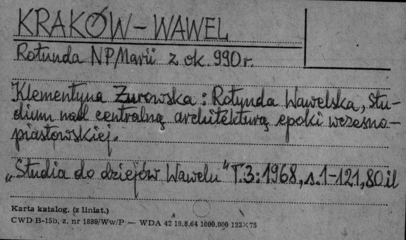 KRAKÓW-WAWEL
Rotunda NPMarii z ok. 990 r.
Klementyna Żurowska: Rotunda Wawelska, Stu-
dium nad centralną architekturą epoki wczesno-
piastowskiej.
"Studia do dziejów Wawelu" T.3: 1968, s. 1-121, 80 il
Karta katalog. (z liniat.)
CWD B-15b, z. nr 1889/Ww/P — WDA 42 19.8.64 1000.000 123×75